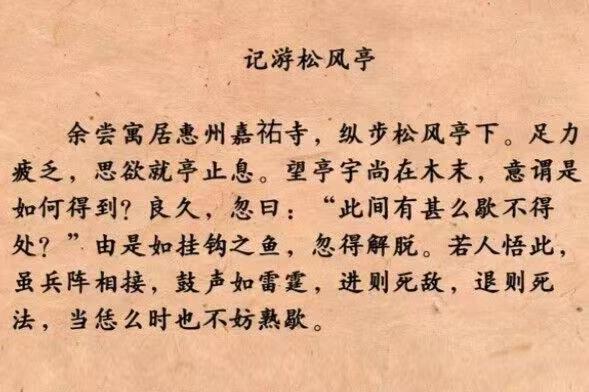 记游松风亭
余尝寓居惠州嘉祐寺，纵步松风亭下。足力
疲乏，思欲就亭止息。望亭宇尚在木末，意谓是
如何得到？良久，忽曰：“此间有甚么歇不得
处？”由是如挂钩之鱼，忽得解脱。若人悟此，
虽兵阵相接，鼓声如雷霆，进则死敌，退则死
法，当恁么时也不妨熟歇。